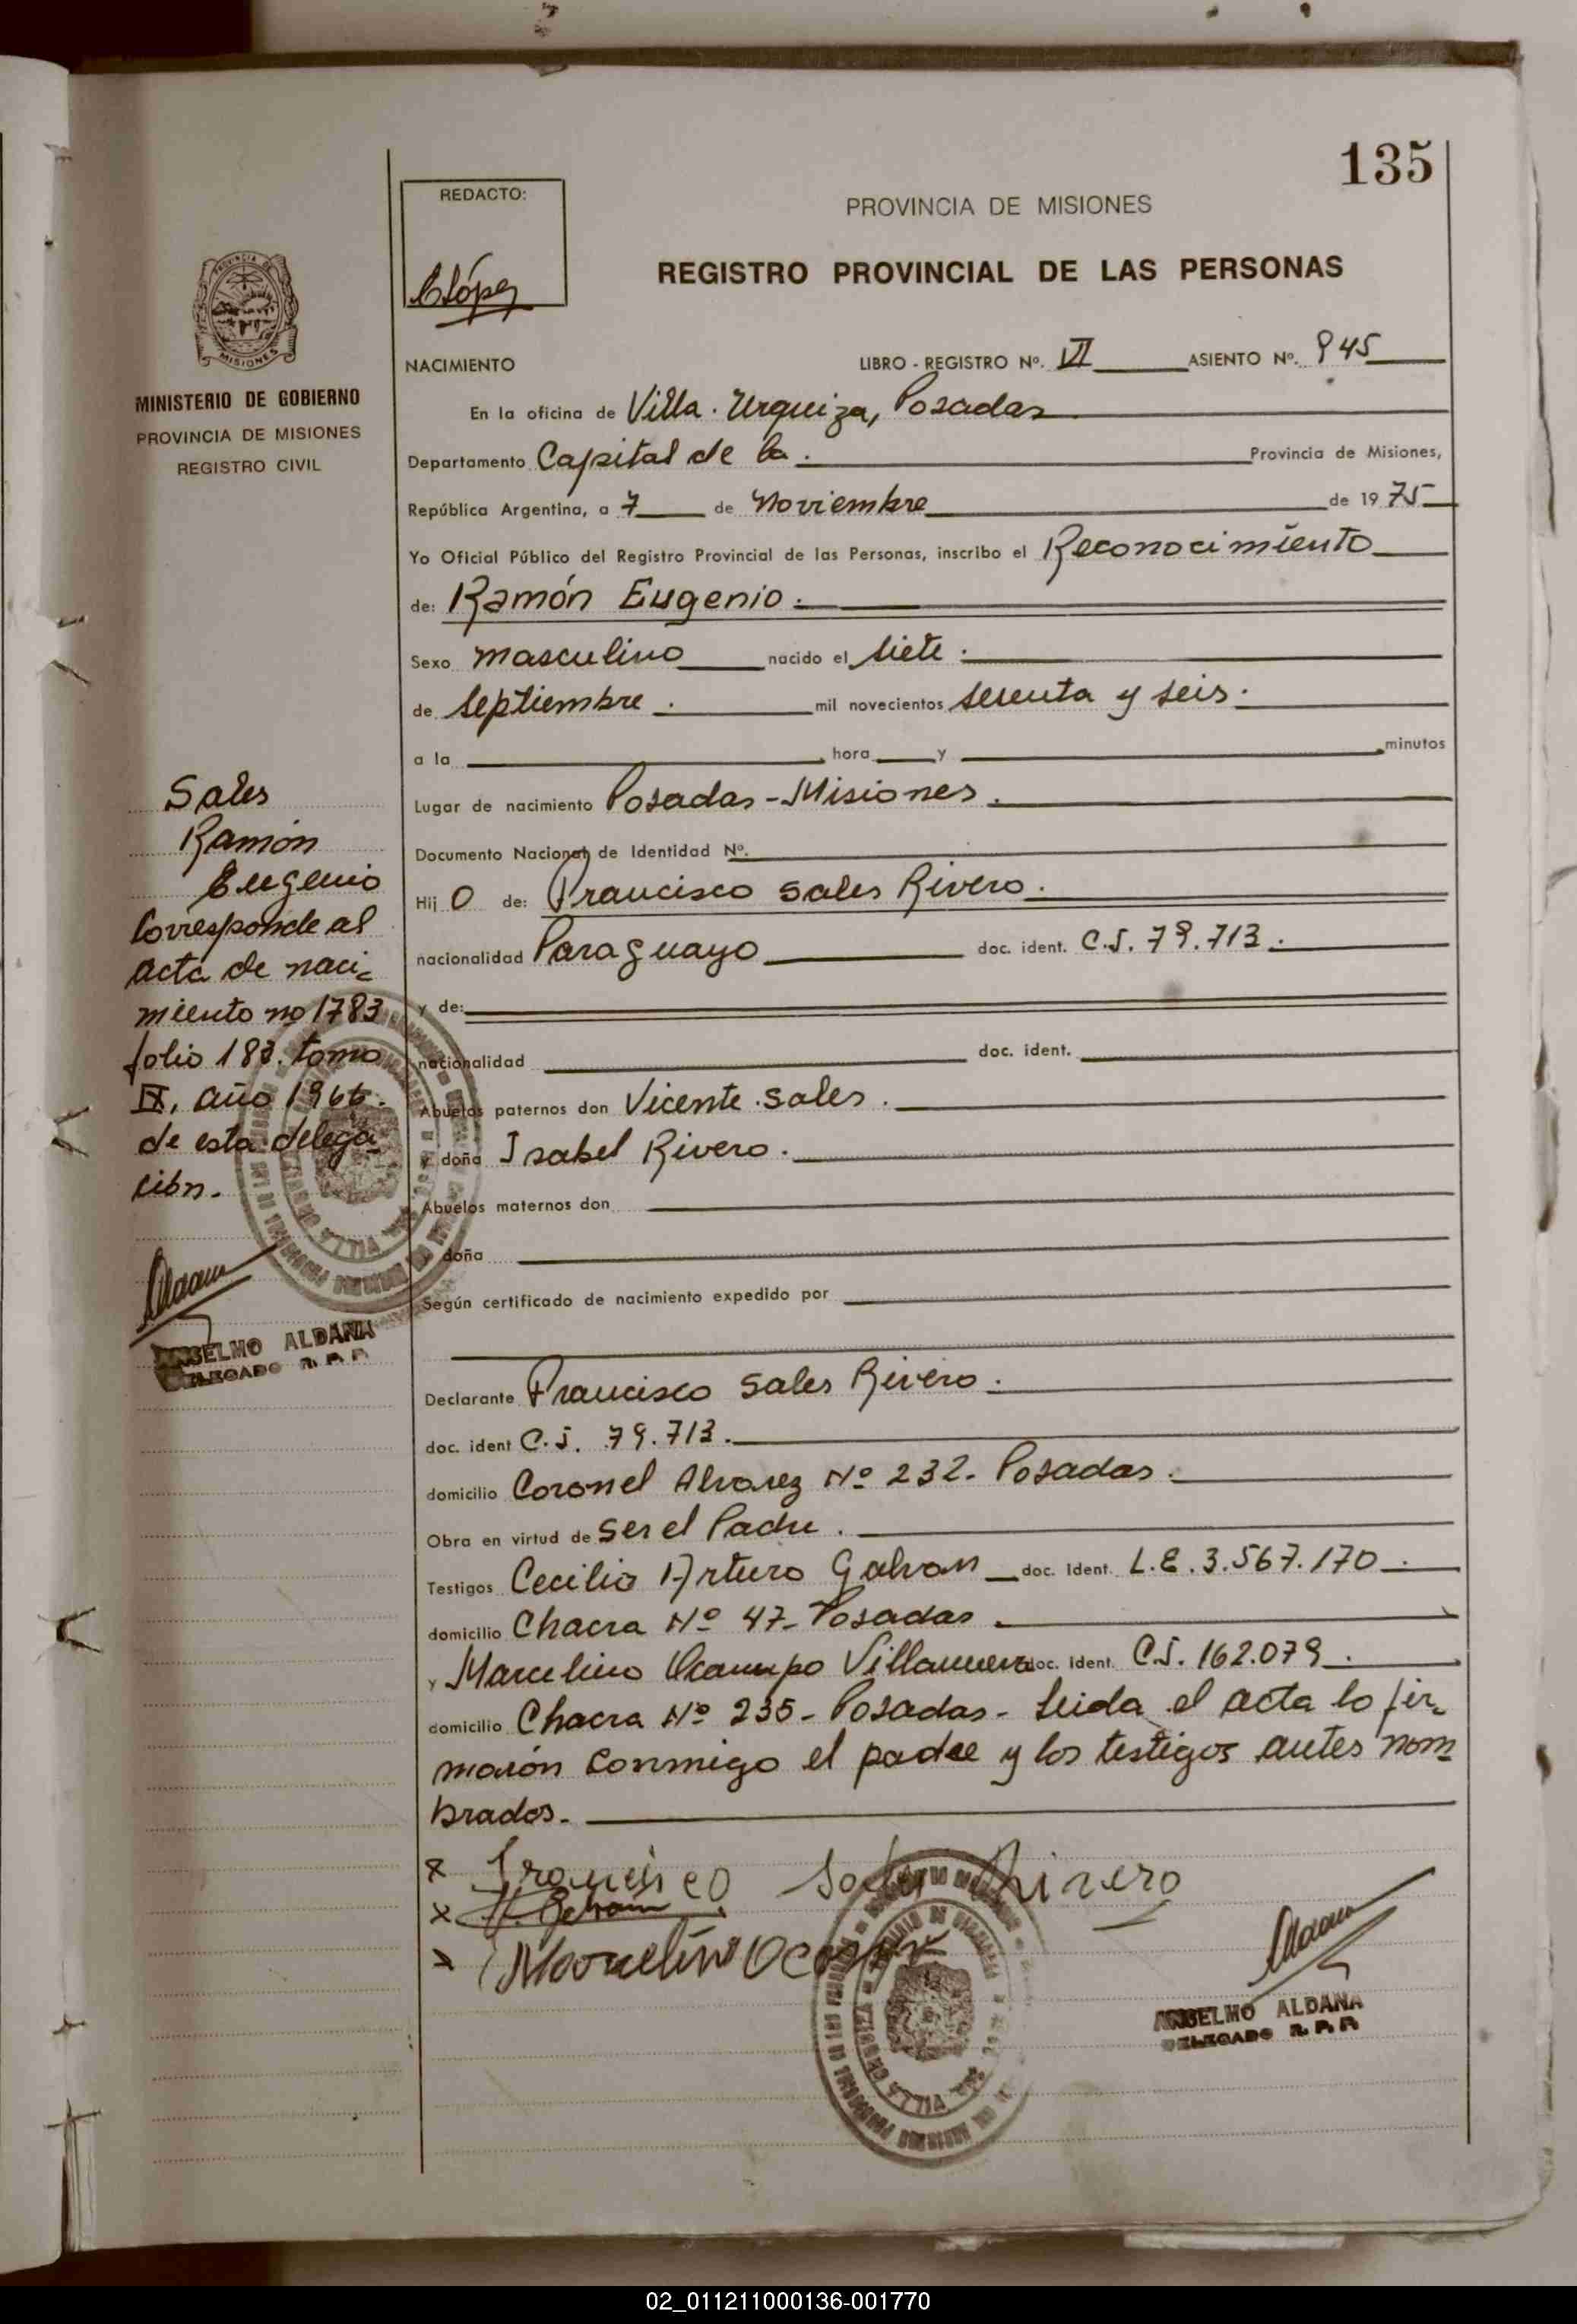 135
REDACTO:
CLópez
PROVINCIA DE MISIONES
REGISTRO PROVINCIAL DE LAS PERSONAS
PROVINCIA DE
MISIONES
MINISTERIO DE GOBIERNO
PROVINCIA DE MISIONES
REGISTRO CIVIL
NACIMIENTO LIBRO - REGISTRO Nº. VII ASIENTO Nº. 945
En la oficina de Villa. Urquiza, Posadas
Departamento Capital de la. Provincia de Misiones,
República Argentina, a 7 de Noviembre de 1975
Yo Oficial Público del Registro Provincial de las Personas, inscribo el Reconocimiento
de: Ramón Eugenio.
Sexo masculino nacido el siete.
de septiembre. mil novecientos sesenta y seis.
a la hora y minutos
Lugar de nacimiento Posadas - Misiones.
Documento Nacional de Identidad Nº.
Hij o de: Francisco Sales Rivero.
nacionalidad Paraguayo doc. ident. C.I. 79.713.
y de:
nacionalidad doc. ident.
Abuelos paternos don Vicente Sales.
y doña Isabel Rivero.
Abuelos maternos don
doña
Según certificado de nacimiento expedido por
Declarante Francisco Sales Rivero.
doc. ident C.I. 79.713.
domicilio Coronel Alvarez Nº 232- Posadas.
Obra en virtud de ser el Padre.
Testigos Cecilio Arturo Galvan doc. Ident. L.E. 3.567.170.
domicilio Chacra Nº 47- Posadas.
y Marcelino Ocampo Villanueva doc. Ident. C.I. 162.079.
domicilio Chacra Nº 235- Posadas- Leida el acta lo fir-
marón conmigo el padre y los testigos antes nom-
brados.-
x Francisco Sales Rivero
x
x Marcelino Ocampo
ANSELMO ALDANA
DELEGADO R. P. P.
Sales
Ramón
Eugenio
Corresponde al
acta de naci-
miento no 1783
folio 183. tomo
IX, año 1966.
de esta delega-
ción.
ANSELMO ALDANA
DELEGADO R. P. P.
02_011211000136-001770